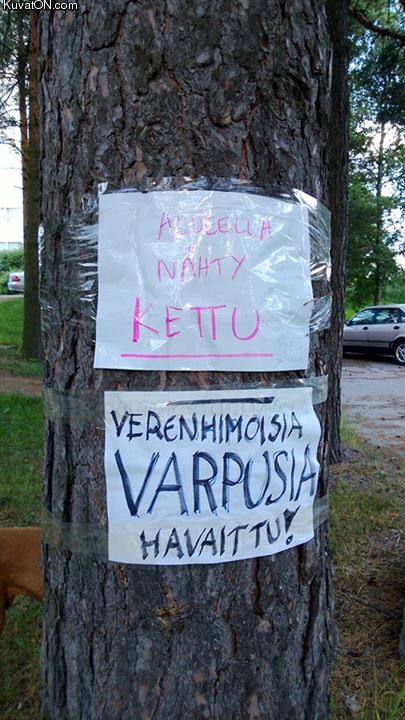 KuvatON.com
ALUEELLA
NÄHTY
KETTU
VERENHIMOISIA
VARPUSIA
HAVAITTU!